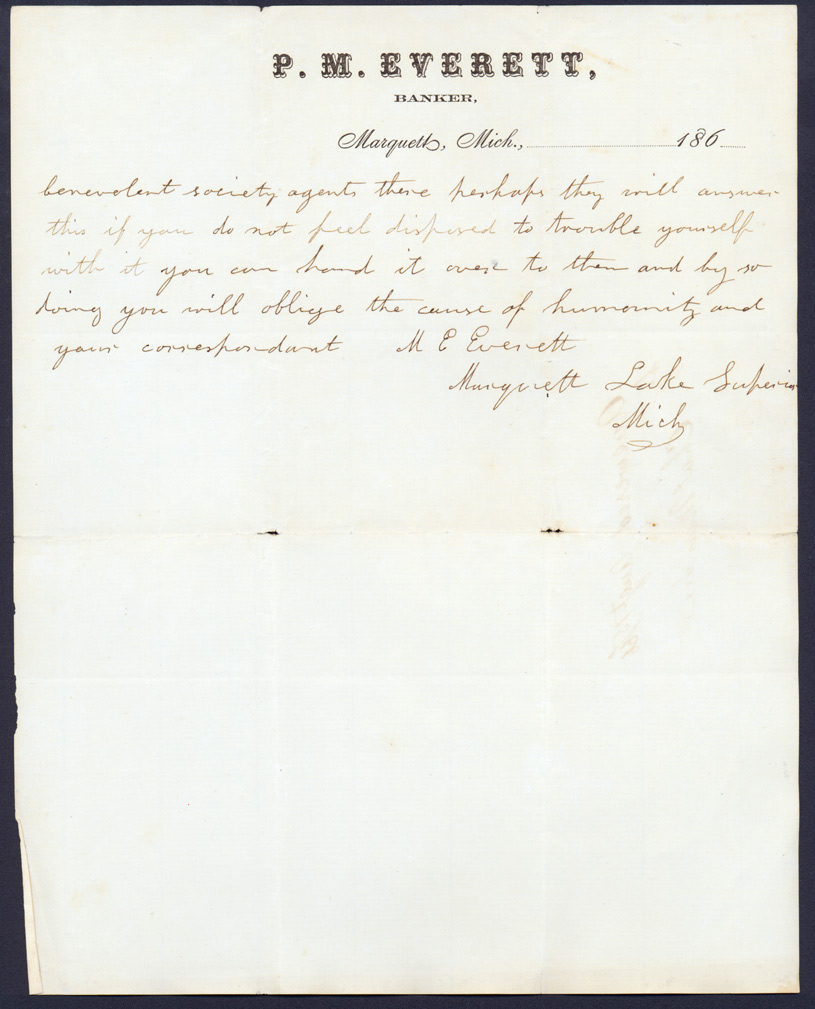 P. M. EVERETT,
BANKER,
Marquett, Mich., 186
benevolent society agents there perhaps they will answer
this if you do not feel disposed to trouble yourself
with it you can hand it over to them and by so
doing you will oblige the cause of humanity and
your correspondant M E Everett
Marquett Lake Superior
Mich